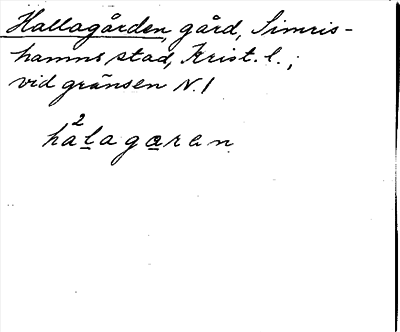 Hallagården, gård, Simris-
hamns stad, Krist. l.;
vid gränsen N. 1
2
halagaran